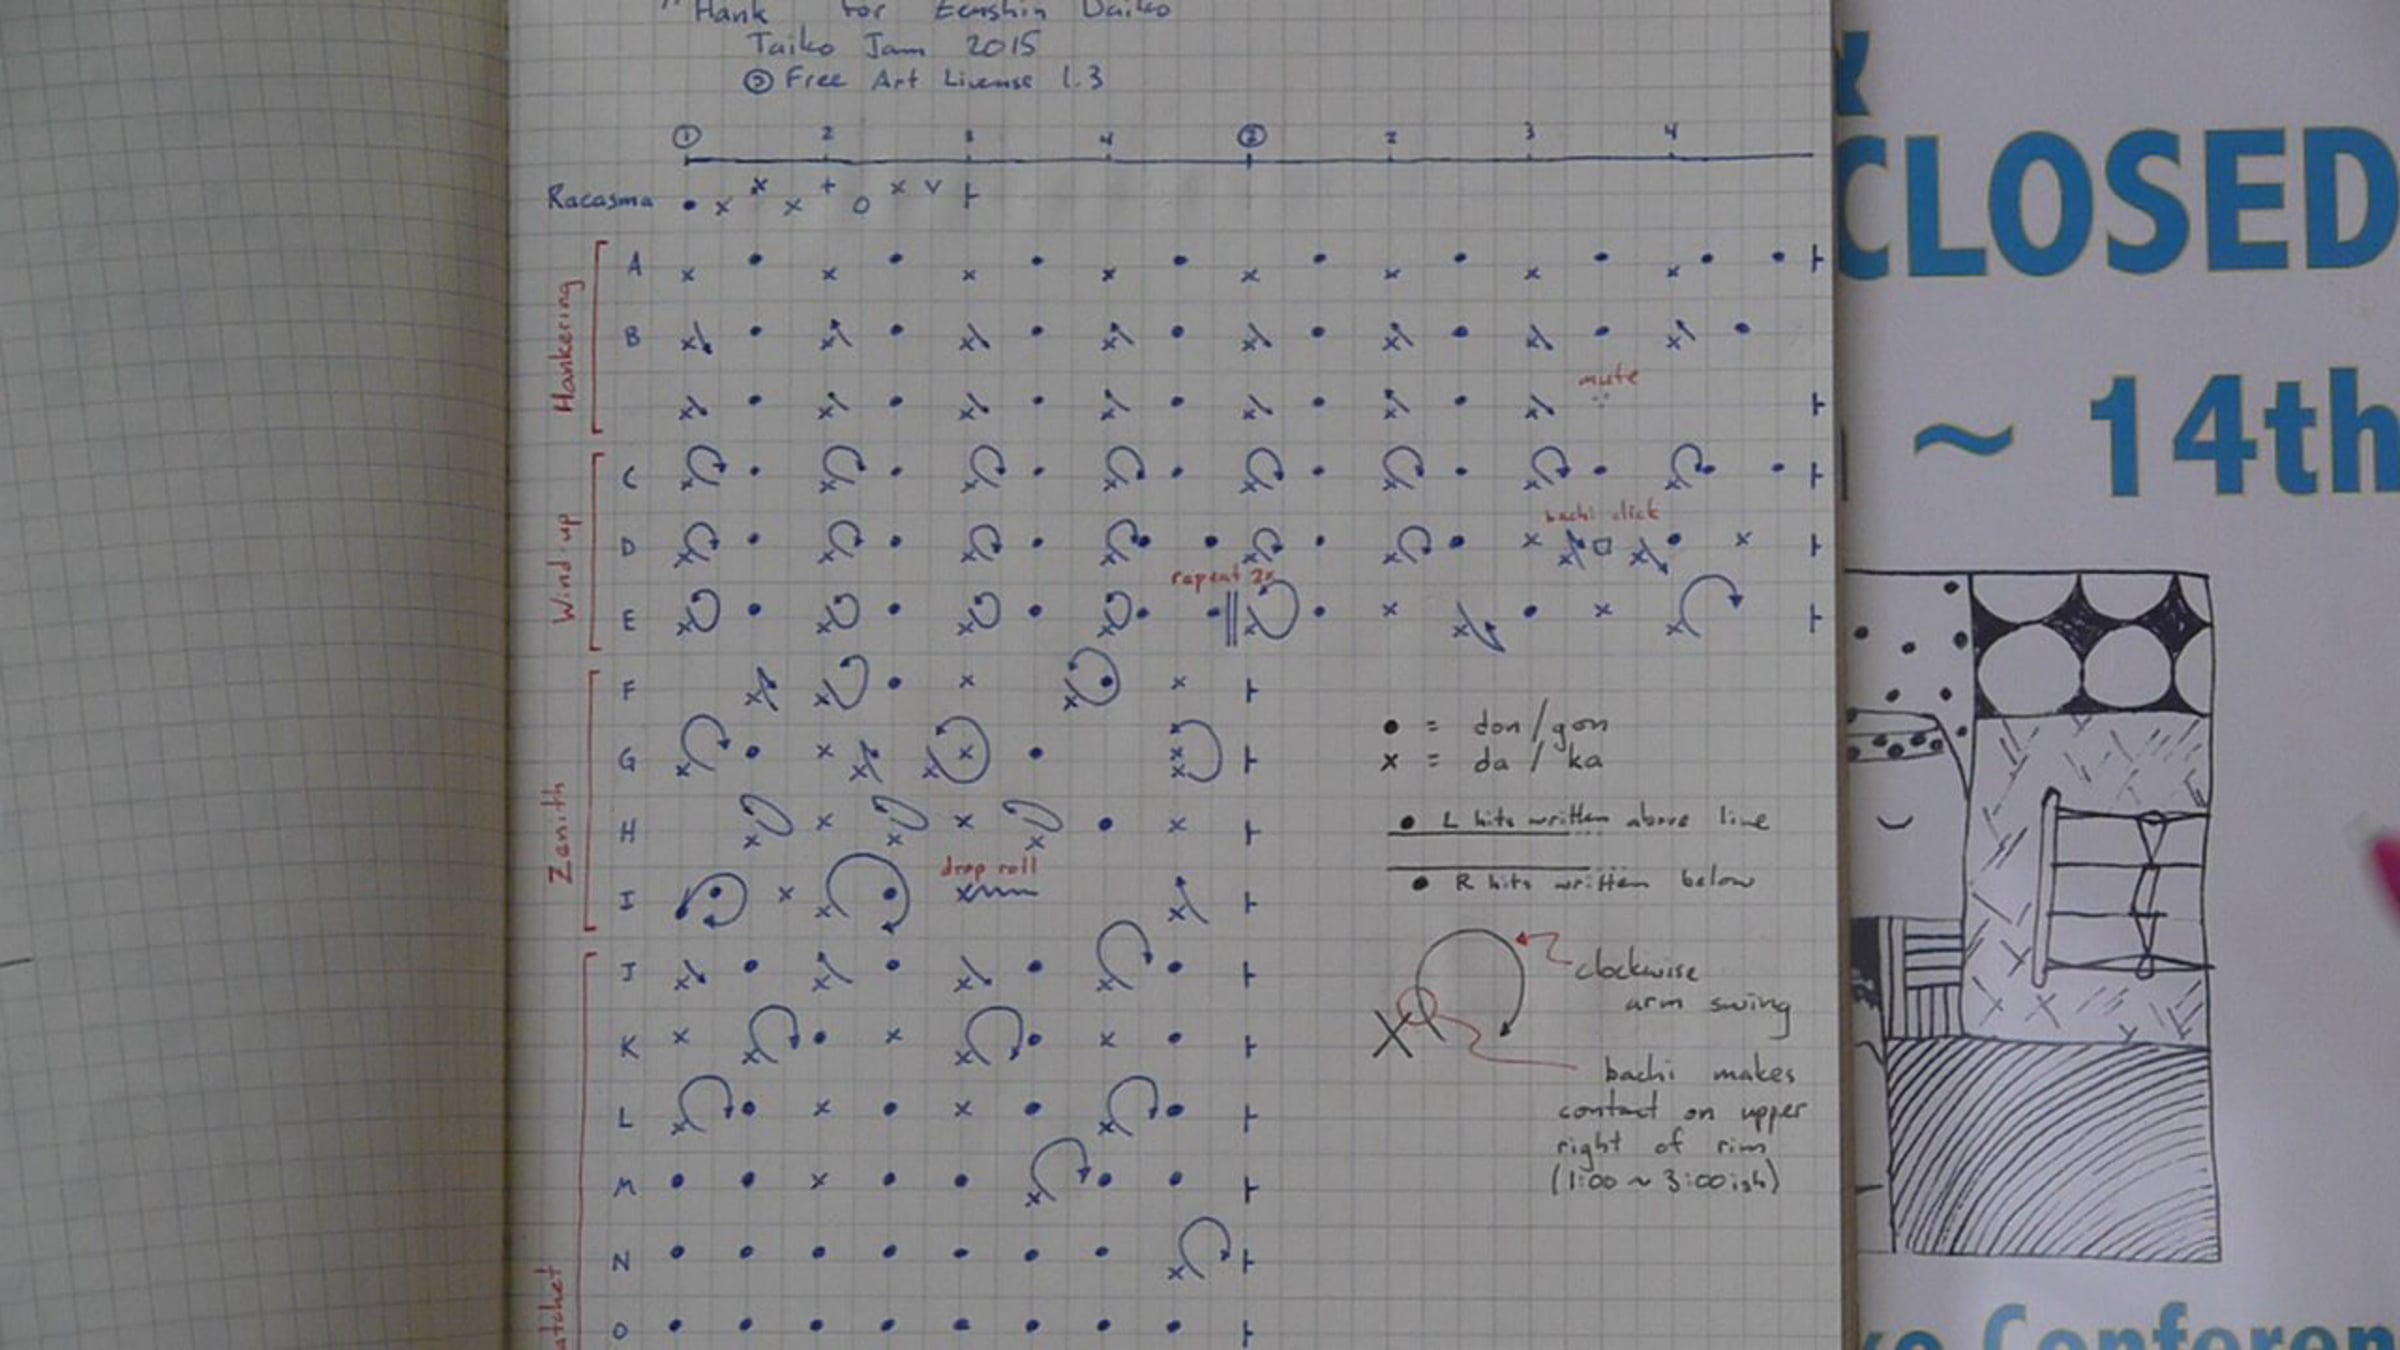 "Hank" for Eenshin Daiko
Taiko Jam 2015
Free Art License 1.3
① 2 3 4 ② 2 3 4
Racasma
Hankering
A
B
mute
Wind up
C
bachi click
D
repeat 2x
E
Zenith
F
G
H
drop roll
I
J
K
L
M
N
O
• = don/gon
x = da / ka
• L hits written above line
• R hits written below
clockwise
arm swing
bachi makes
contact on upper
right of rim
(1:00 ~ 3:00ish)
CLOSED
~ 14th